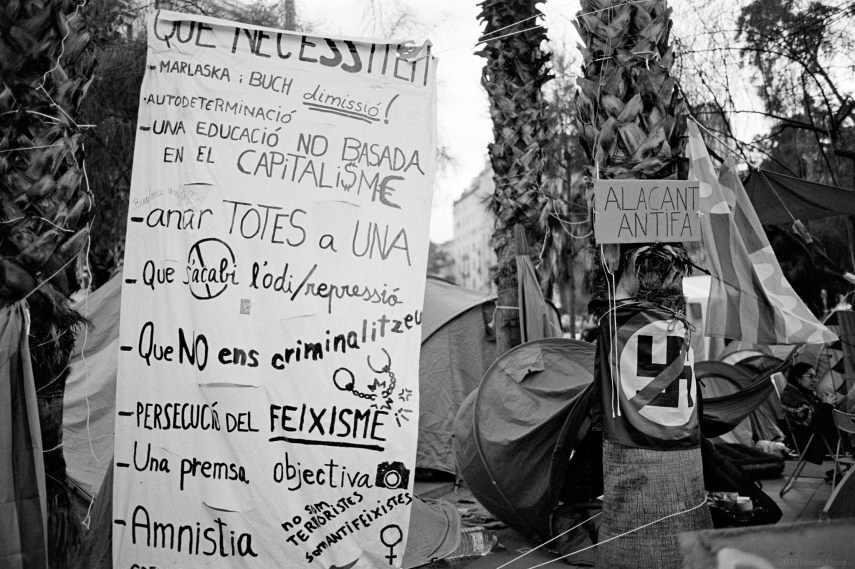 QUE NECESSITEM
- MARLASKA i BUCH dimissió!
- AUTODETERMINACIÓ
- UNA EDUCACIÓ NO BASADA
EN EL CAPITALISM€
- anar TOTES a UNA
- Que s'acabi l'odi/repressió
- Que NO ens criminalitzeu
- PERSECUCIÓ DEL FEIXISME
- Una premsa objectiva
- Amnistia
no som
TERRORISTES
som ANTIFEIXISTES
ALACANT
ANTIFA